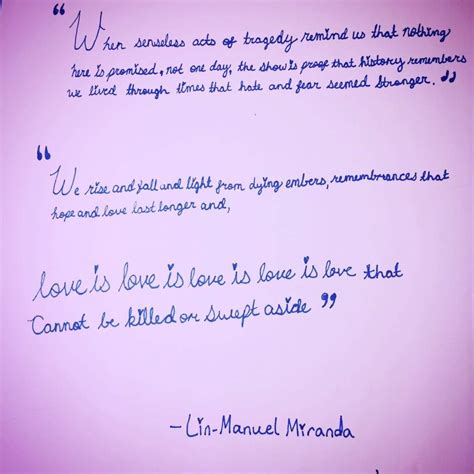 “When senseless acts of tragedy remind us that nothing
here is promised, not one day, the show is proof that history remembers
we lived through times that hate and fear seemed stronger. ”
“We rise and fall and light from dying embers, remembrances that
hope and love last longer and,
love is love is love is love is love that
Cannot be killed or swept aside ”
-Lin-Manuel Miranda